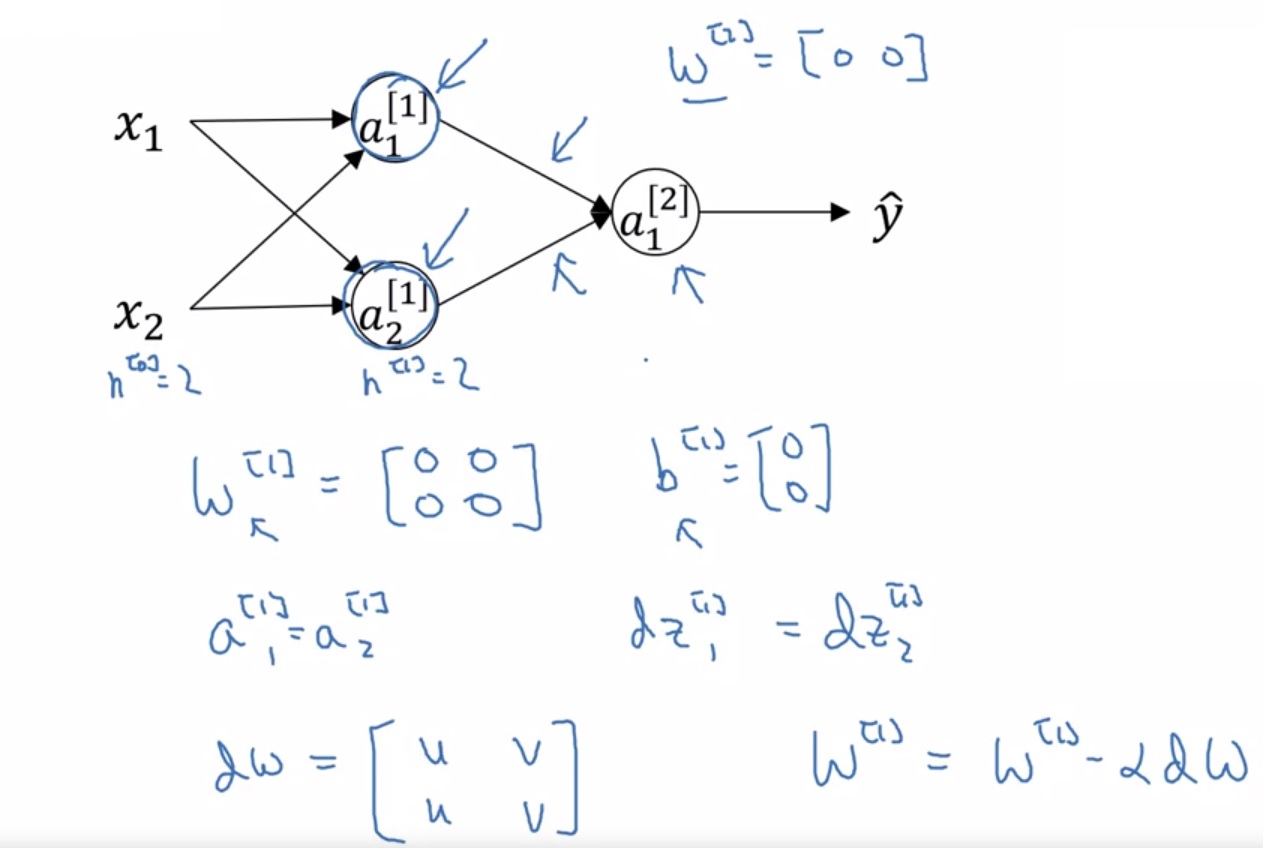 W^{[2]} = [0 0]
x_1
a_1^{[1]}
a_1^{[2]}
ŷ
x_2
a_2^{[1]}
n^{[0]} = 2
n^{[1]} = 2
W^{[1]} = [0 0; 0 0]
b^{[1]} = [0; 0]
a_1^{[1]} = a_2^{[1]}
dz_1^{[1]} = dz_2^{[1]}
dW = [u v; u v]
W^{[1]} = W^{[1]} - αdW